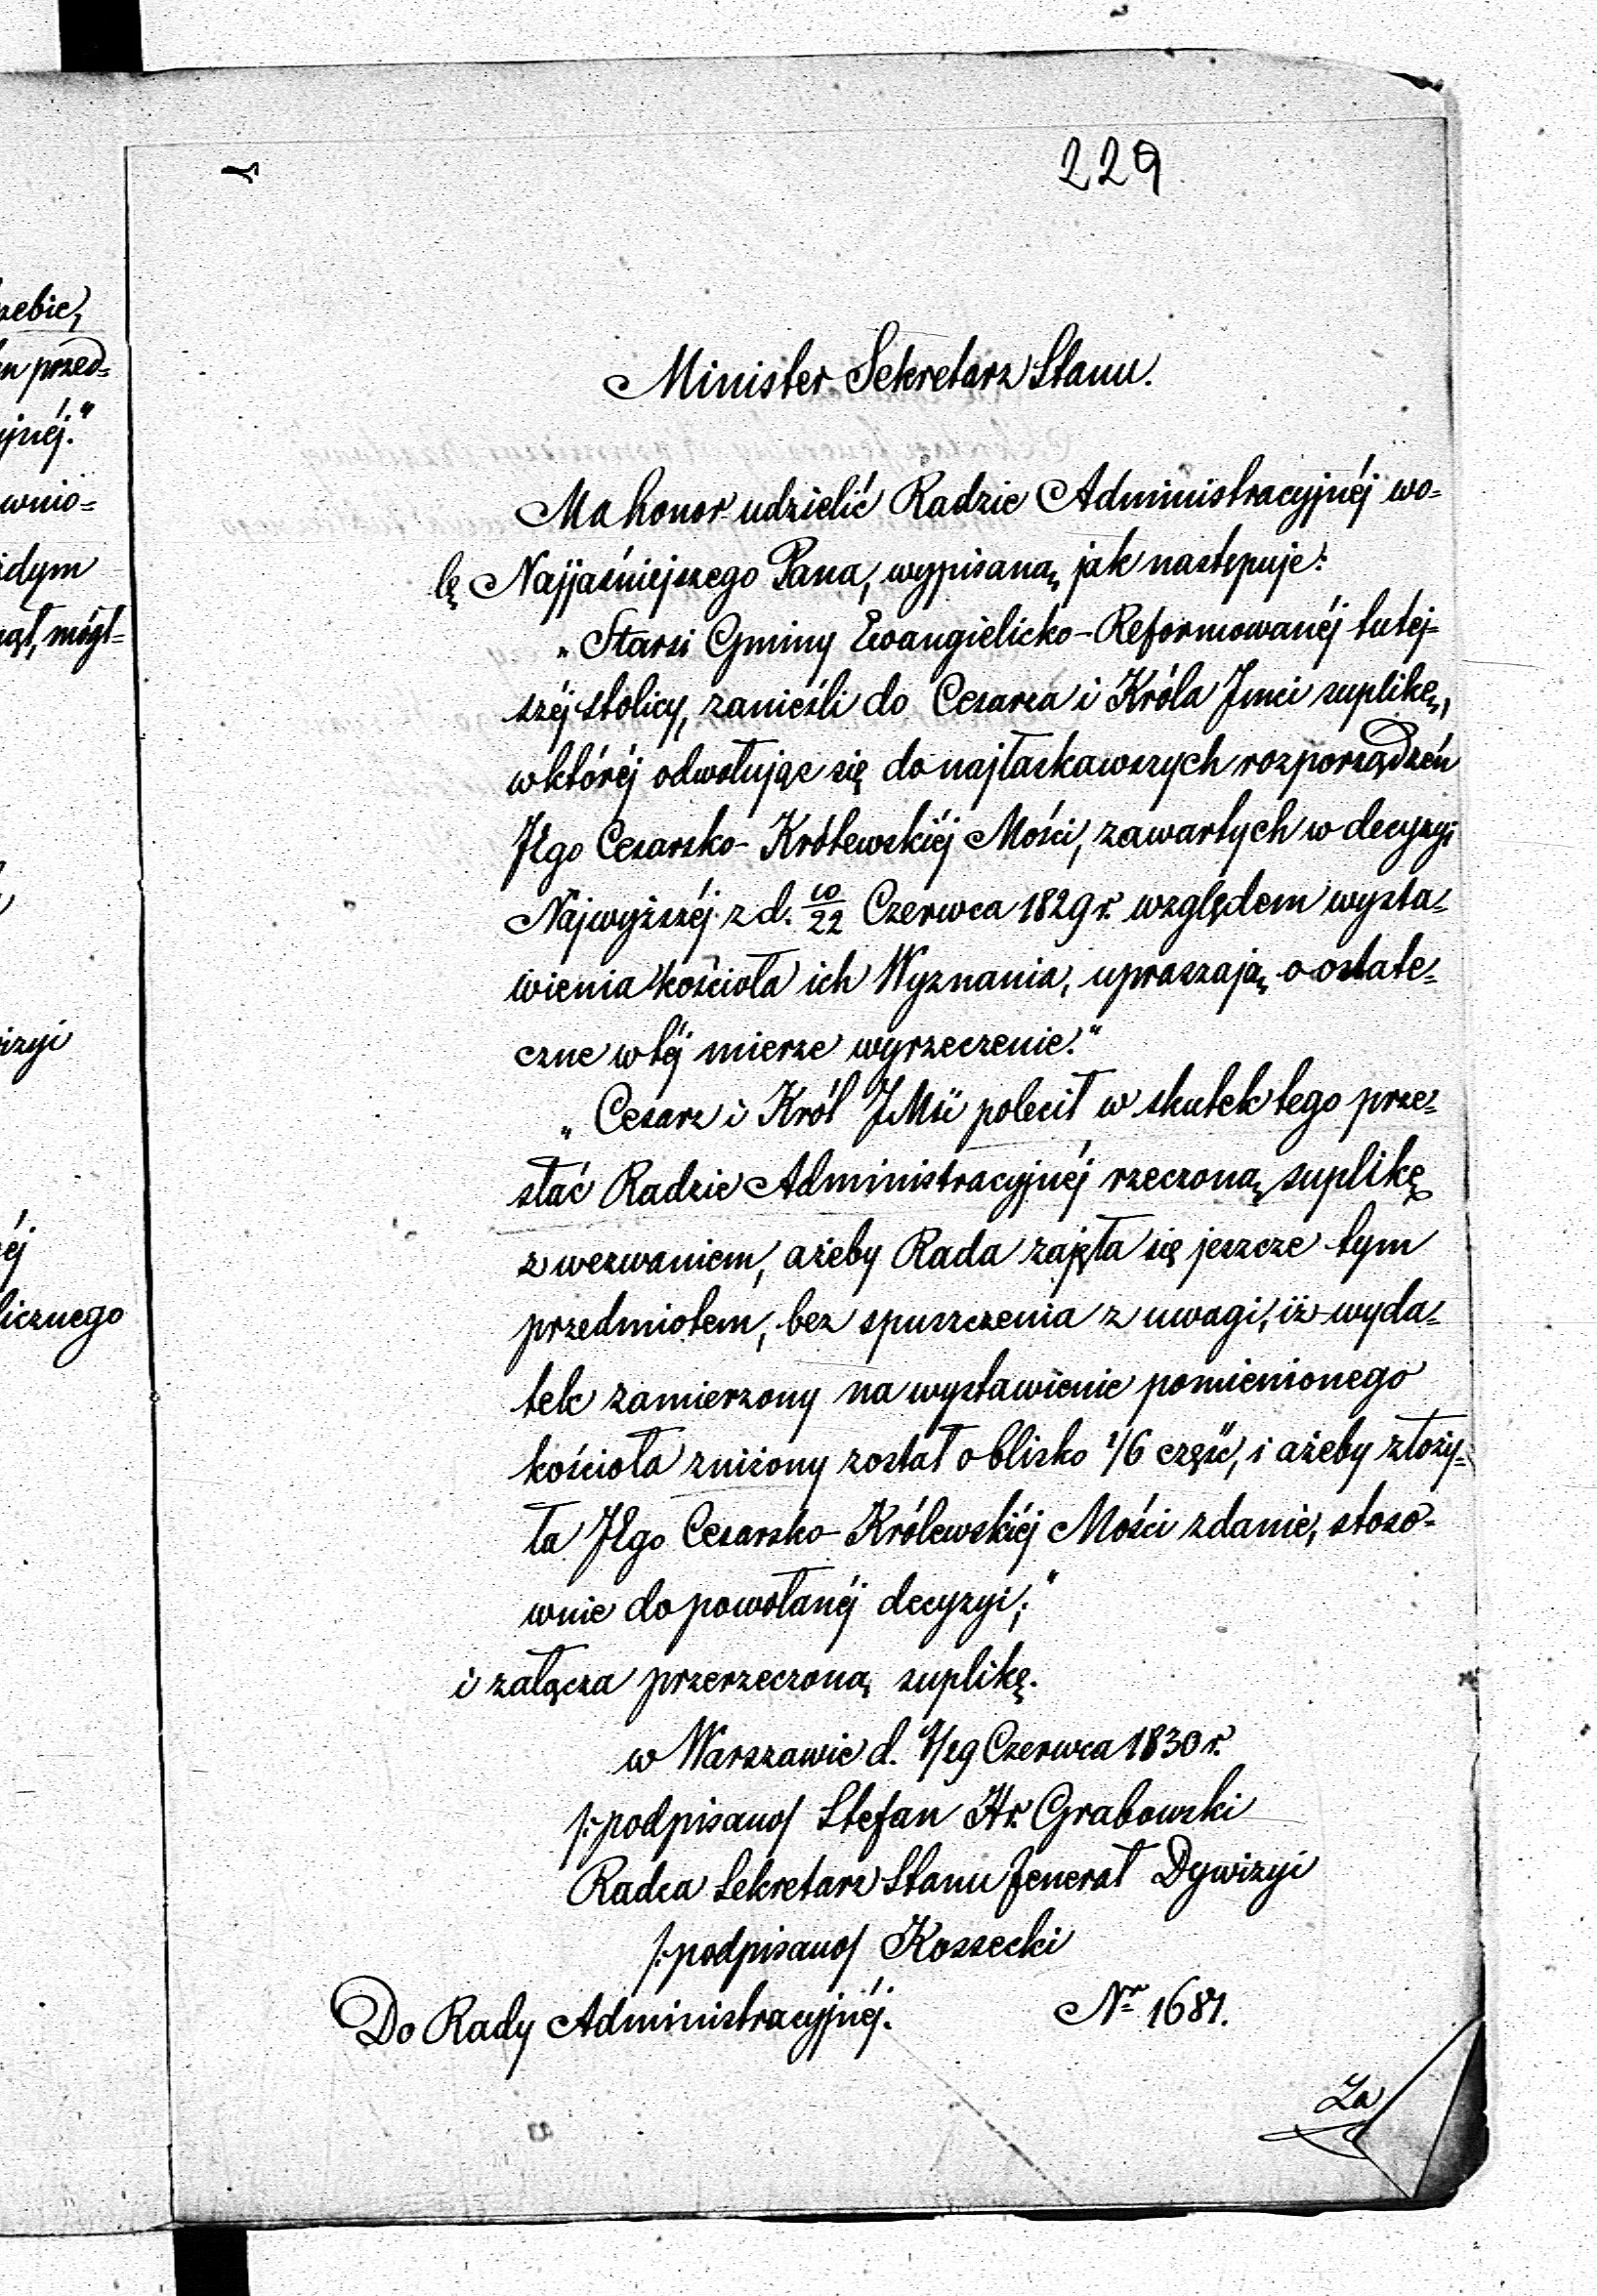 229
Minister Sekretarz Stanu.
Ma honor udzielić Radzie Administracyjnéj wo=
lę Najjaśniejszego Pana, wypisaną jak następuje:
„Starsi Gminy Ewangielicko-Reformowanéj tutej=
széj stolicy, zanieśli do Cesarza i Króla Jmci suplikę,
w któréj odwołując się do najłaskawszych rozporządzeń
JEgo Cesarsko-Królewskiéj Mości, zawartych w decyzyi
Najwyższéj z d. 10/22 Czerwca 1829 r. względem wysta=
wienia kościoła ich Wyznania, upraszają o ostate=
czne w téj mierze wyrzeczenie."
„Cesarz i Król JMść polecił w skutek tego prze=
słać Radzie Administracyjnéj rzeczoną suplikę
z wezwaniem, ażeby Rada zajęła się jeszcze tym
przedmiotem, bez spuszczenia z uwagi, iż wyda=
tek zamierzony na wystawienie pomienionego
kościoła zniżony został o blisko 1/6 część, i ażeby złoży=
ła JEgo Cesarsko-Królewskiéj Mości zdanie, stoso=
wnie do powołanéj decyzyi;"
i załącza przerzeczoną suplikę.
w Warszawie d. /19 Czerwca 1830 r.
/:podpisano/ Stefan Hr. Grabowski
Radca Sekretarz Stanu Jenerał Dywizyi
/:podpisano/ Kossecki
Do Rady Administracyjnéj. Nr 1681.
Za